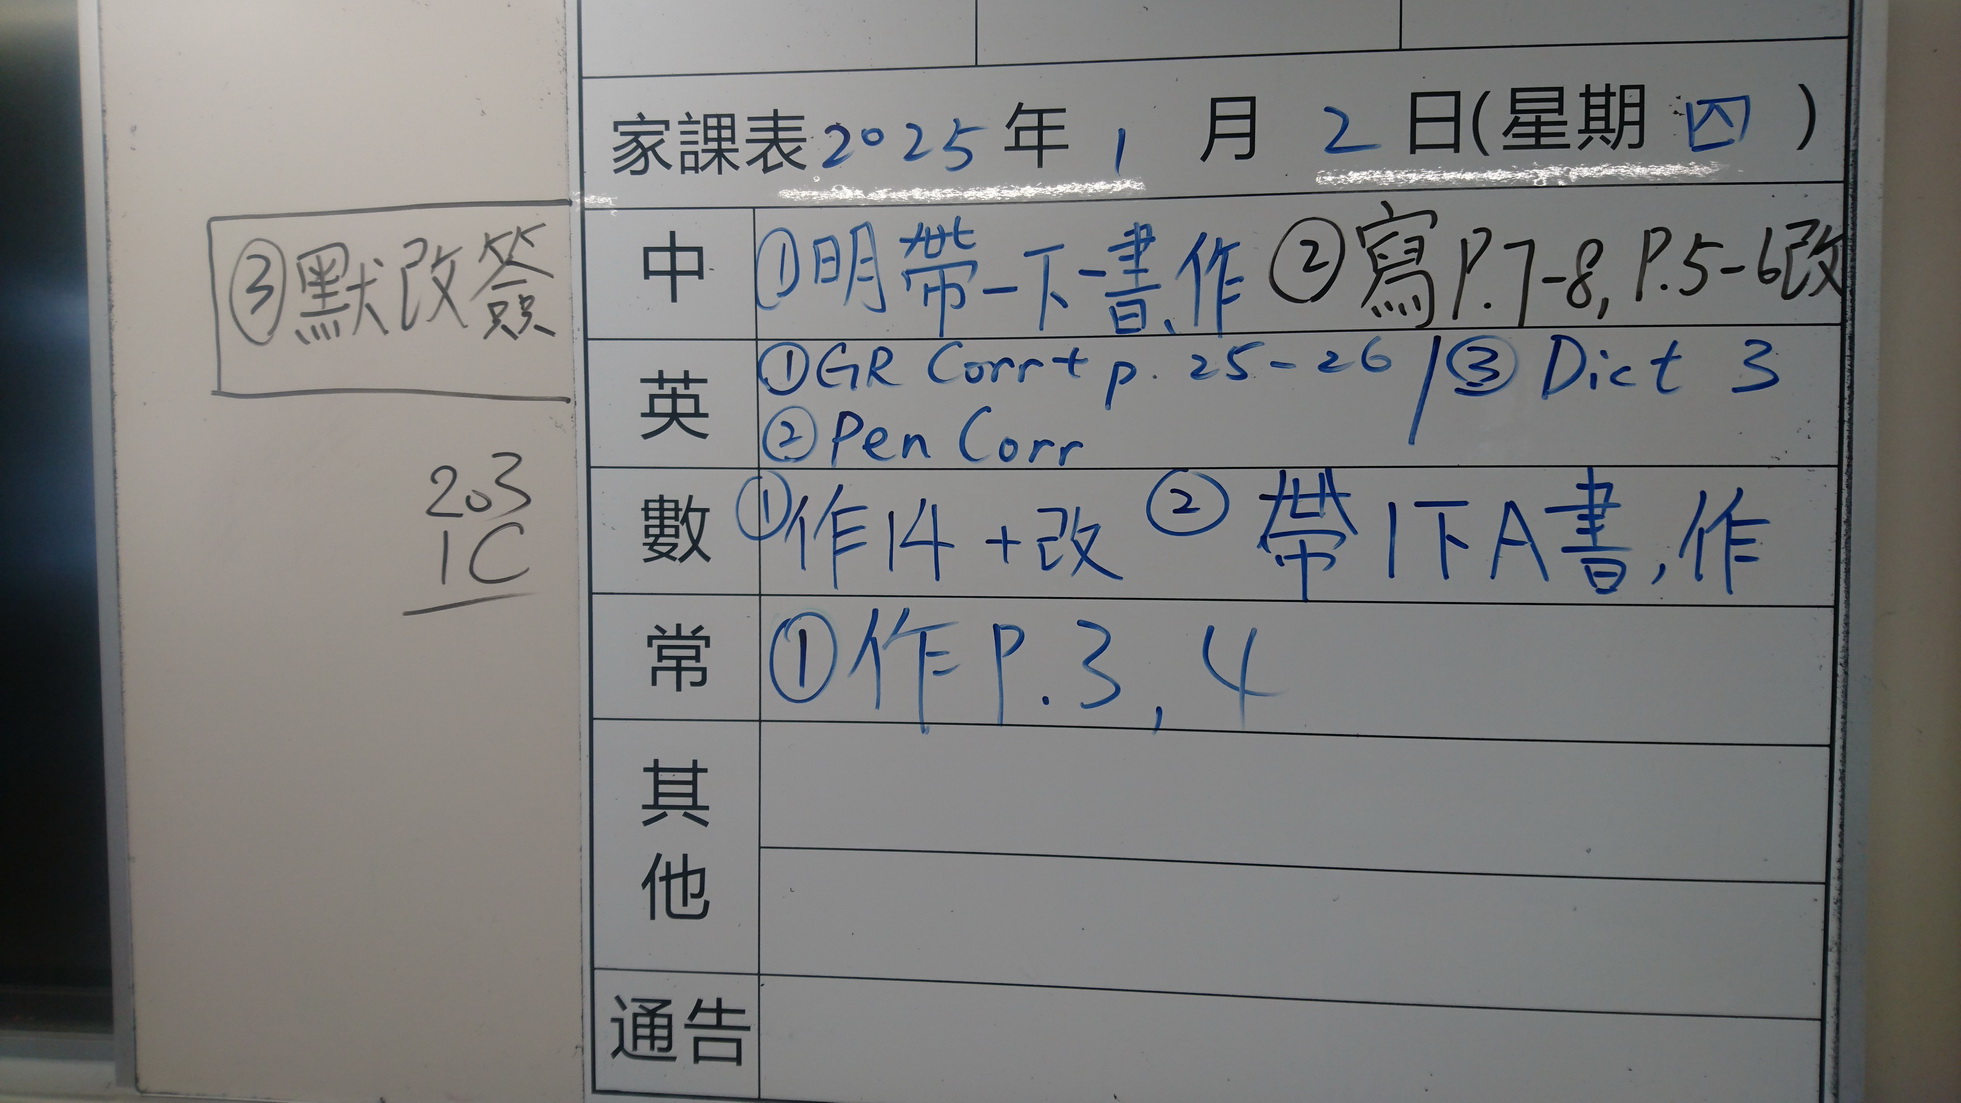 家課表2025年1月2日(星期四)
③默改簽
中 ①明帶一下一書、作 ②寫P.7-8, P.5-6改
英 ①GR Corr+ p. 25-26 / ③ Dict 3
②Pen Corr
203
1C
數 ①作14+改 ② 帶1下A書,作
常 ①作P.3, 4
其他
通告